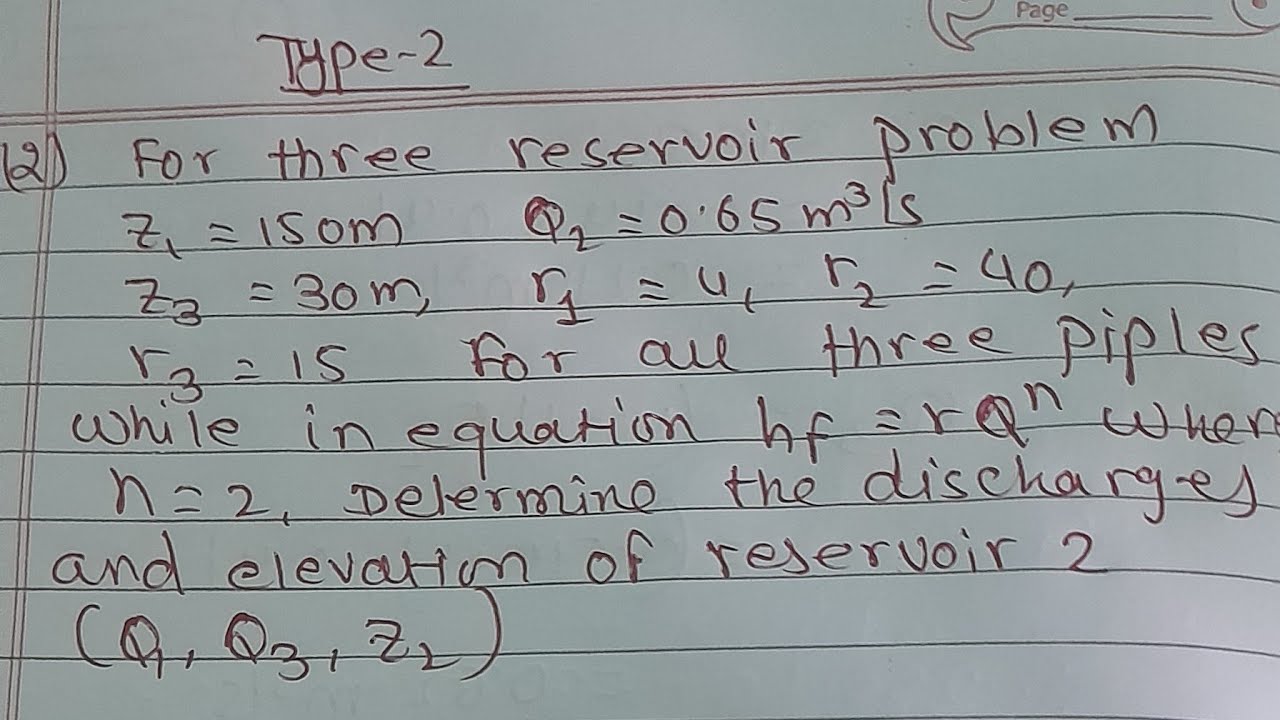 Page
Type-2
(2) For three reservoir problem
z₁ = 150m Q₂ = 0.65 m³/s
z₃ = 30m, r₁ = 4, r₂ = 40,
r₃ = 15 For all three piples
while in equation hf = rQⁿ when
n = 2, Determine the discharges
and elevation of reservoir 2
(Q₁, Q₃, z₂)